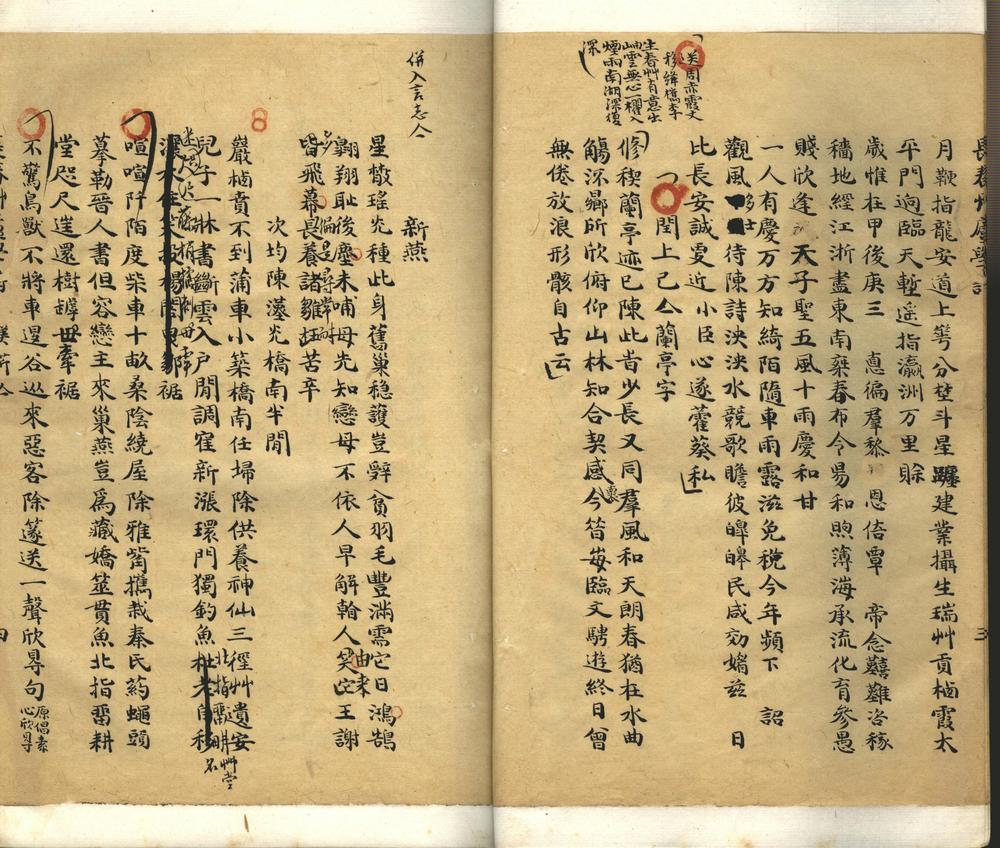 月鞭指龍安道上萼分埜斗星躔建業攝生瑞艸貢栖霞太
平門逈臨天塹遥指瀛洲万里賖
歲惟在甲後庚三 惪徧羣黎 恩俉覃 帝念囏難咨稼
穡地經江浙盡東南栞春布令昜和煦薄海承流化育參愚
賤欣逢 天子聖五風十雨慶和甘
一人有慶万方知綺陌隨車雨露滋免稅今年頻下 詔
觀風 待陳詩泱泱水競歌瞻彼皞皞民咸効媚茲 日
比長安誠更近小臣心遂藿葵私
閏上巳亼蘭亭字
修稧蘭亭迹已陳此昔少長又同羣風和天朗春猶在水曲
觴流鄉所欣俯仰山林知合契感今昔每臨文騁遊終日曾
無倦放浪形骸自古云
送周赤霞丈
移緯檇李
生春艸有意出
岫雲無心一櫂入
煙雨南湖深復
深
併入言志亼
新燕
星散瑤光種此身舊巢穩護豈辤貧羽毛豐滿需它日鴻鵠
翺翔恥後塵未哺母先知戀母不依人早解翰人笑它王謝
由来
皆飛幕畏養諸雛抂苦辛
偏是尋常
次均陳瀿光橋南半閒
巖栖賁不到蒲車小築橋南任埽除供養神仙三徑艸遺安
兒子一牀書斷雲入戶閒調寉新漲環門獨釣魚
北指畱耕
艸堂
名
裾
喧喧阡陌度柴車十畝桑陰繞屋除雅蒭攜栽秦民葯蠅頭
摹勒晉人書但容戀主來巢燕豈爲藏嬌筮貫魚北指畱耕
堂咫尺遑還樹罅毌牽裾
不驚鳥獸不將車邊谷巡來惡客除篴送一聲欣㝵句
原倡素
心欣㝵